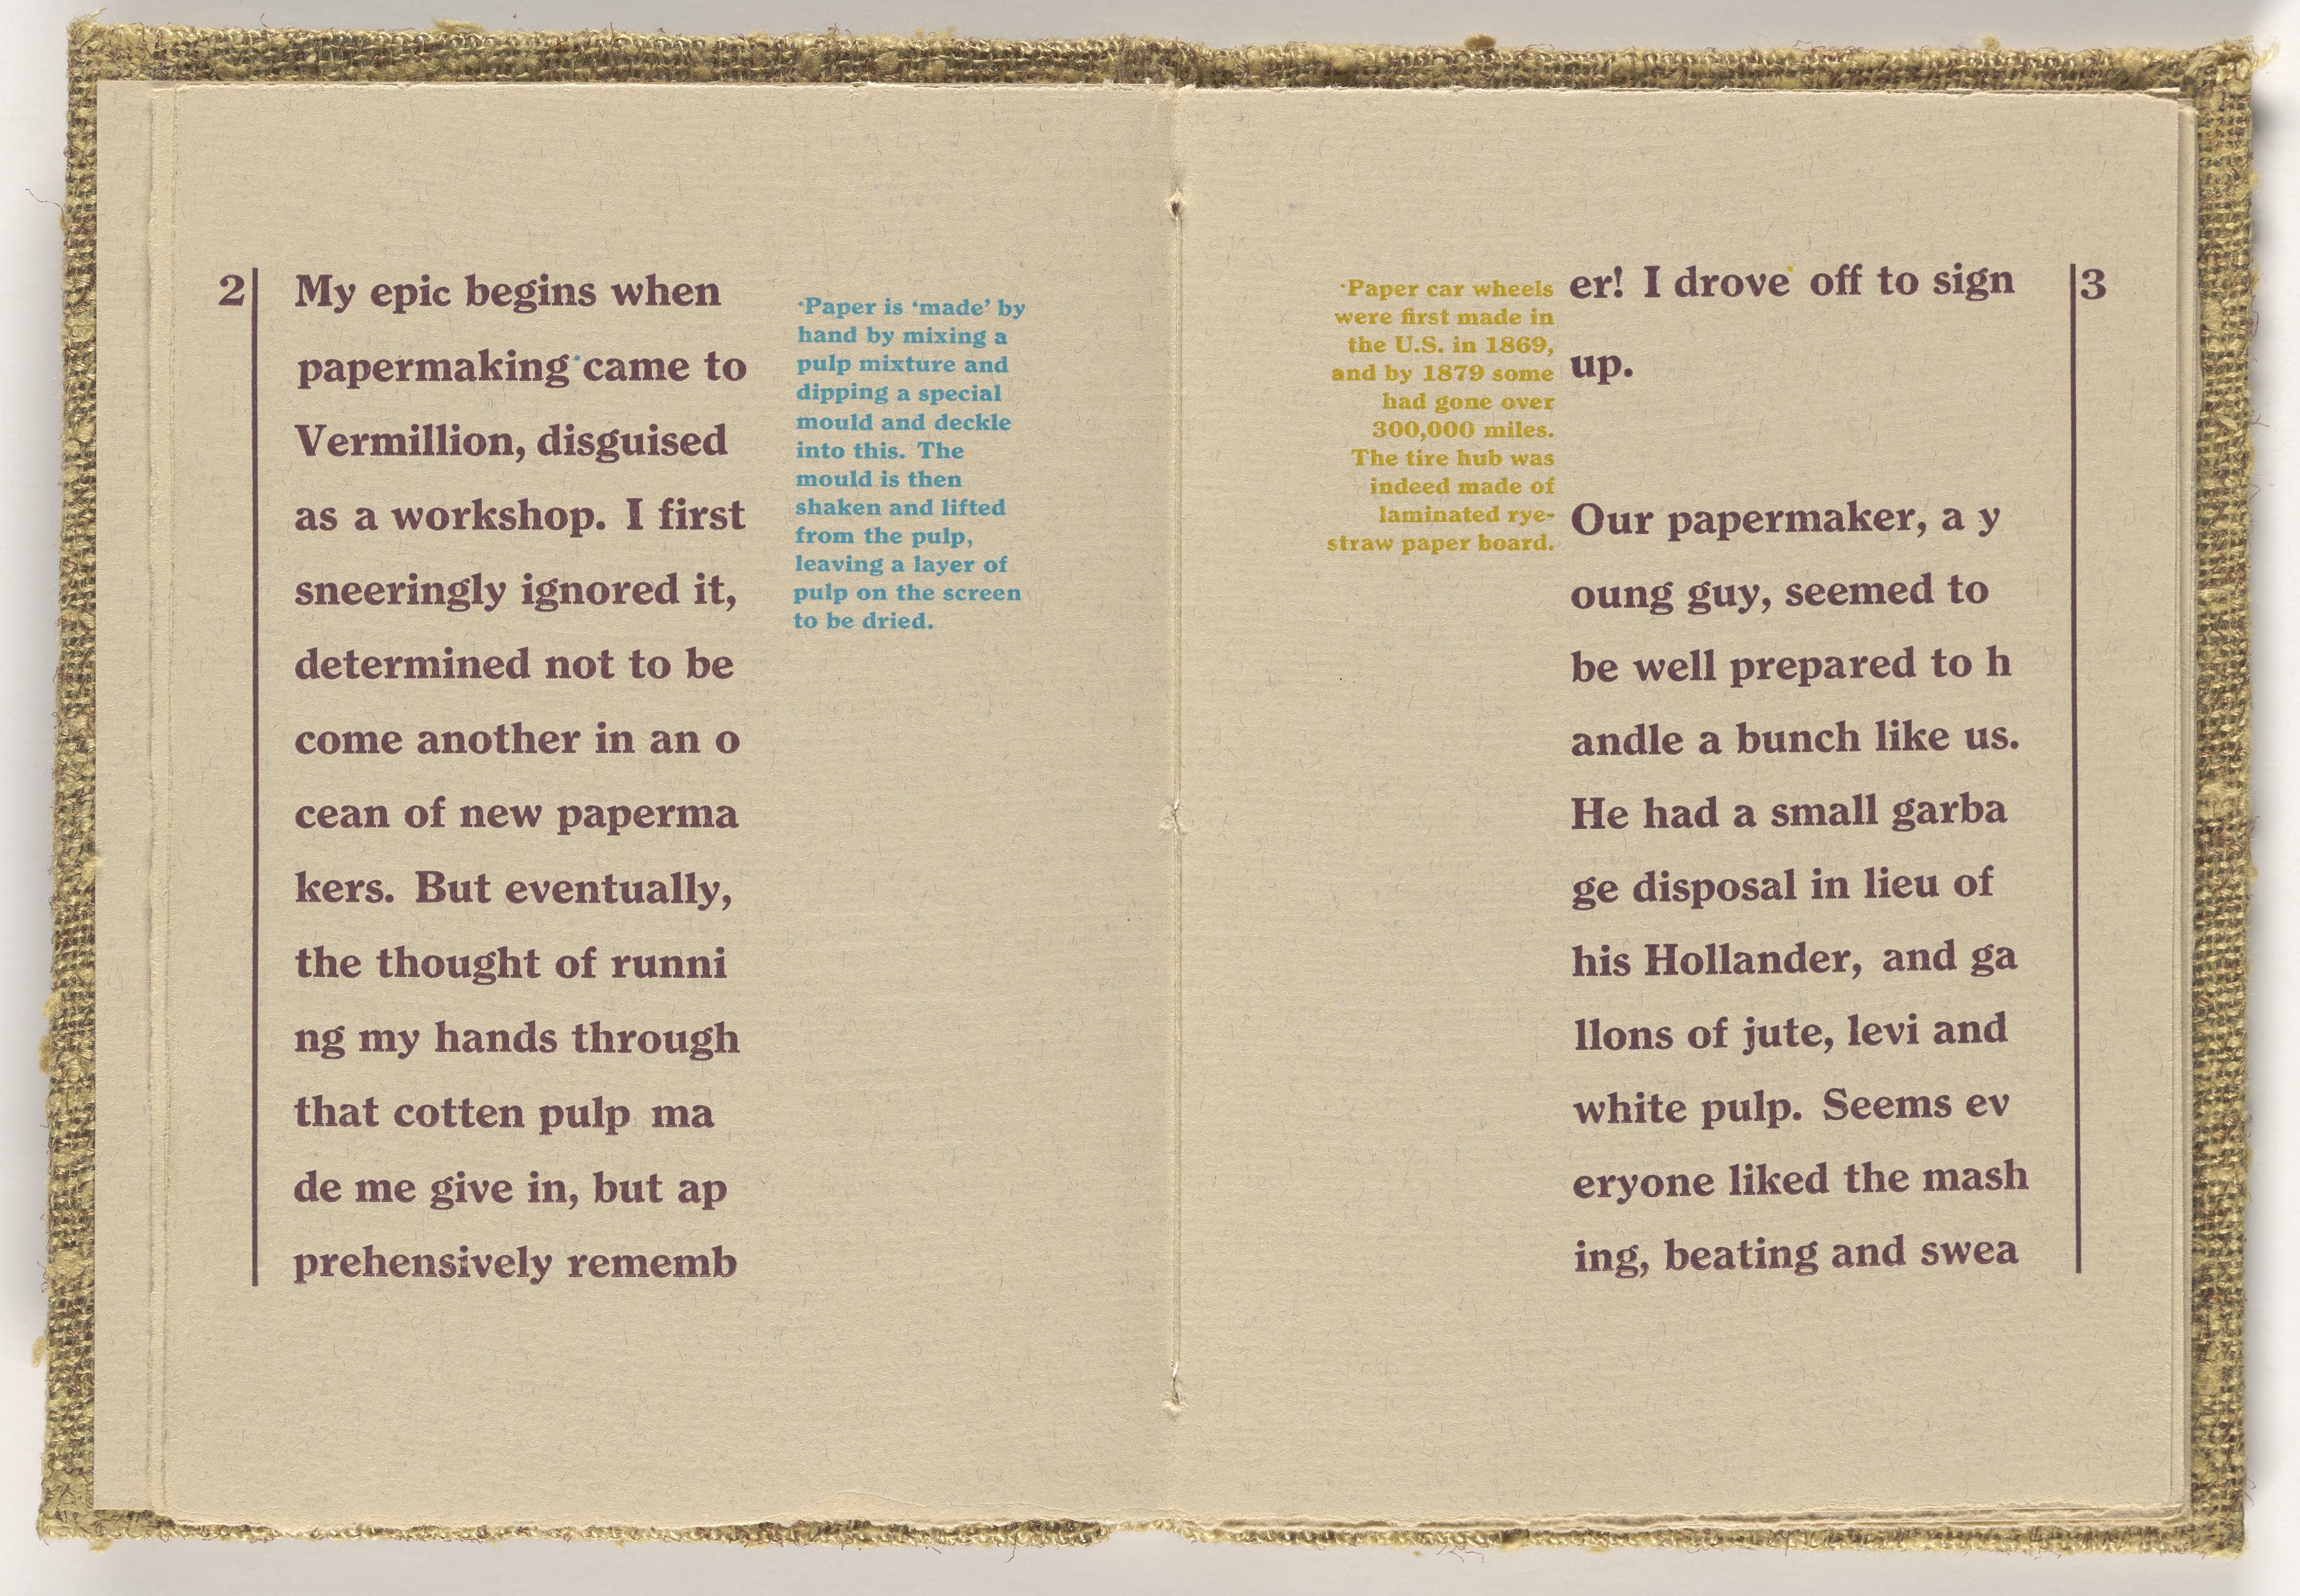 2
My epic begins when
papermaking·came to
Vermillion, disguised
as a workshop. I first
sneeringly ignored it,
determined not to be
come another in an o
cean of new paperma
kers. But eventually,
the thought of runni
ng my hands through
that cotten pulp ma
de me give in, but ap
prehensively rememb
·Paper is ‘made’ by
hand by mixing a
pulp mixture and
dipping a special
mould and deckle
into this. The
mould is then
shaken and lifted
from the pulp,
leaving a layer of
pulp on the screen
to be dried.
·Paper car wheels
were first made in
the U.S. in 1869,
and by 1879 some
had gone over
300,000 miles.
The tire hub was
indeed made of
laminated rye-
straw paper board.
er! I drove· off to sign
up.
Our papermaker, a y
oung guy, seemed to
be well prepared to h
andle a bunch like us.
He had a small garba
ge disposal in lieu of
his Hollander, and ga
llons of jute, levi and
white pulp. Seems ev
eryone liked the mash
ing, beating and swea
3